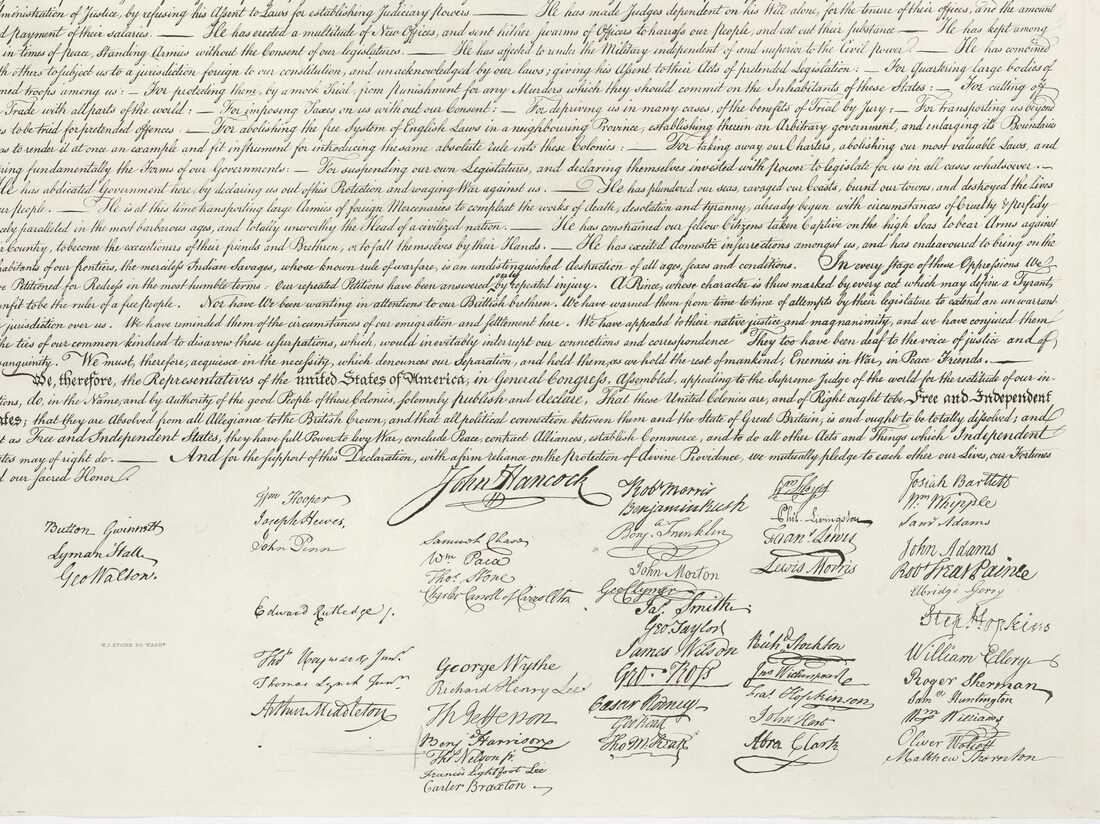 ministration of Justice, by refusing his Assent to Laws for establishing Judiciary powers. — He has made Judges dependent on his Will alone, for the tenure of their offices, and the amount
d payment of their salaries. — He has erected a multitude of New Offices, and sent hither swarms of Officers to harrass our people, and eat out their substance. — He has kept among
in times of peace, Standing Armies without the Consent of our legislatures. — He has affected to render the Military independent of and superior to the Civil power. — He has combined
th others to subject us to a jurisdiction foreign to our constitution, and unacknowledged by our laws; giving his Assent to their Acts of pretended Legislation: — For Quartering large bodies of
med troops among us: — For protecting them, by a mock Trial, from punishment for any Murders which they should commit on the Inhabitants of these States: — For cutting off
Trade with all parts of the world: — For imposing Taxes on us without our Consent: — For depriving us in many cases, of the benefits of Trial by Jury: — For transporting us beyond
s to be tried for pretended offences — For abolishing the free System of English Laws in a neighbouring Province, establishing therein an Arbitrary government, and enlarging its Boundaries
as to render it at once an example and fit instrument for introducing the same absolute rule into these Colonies: — For taking away our Charters, abolishing our most valuable Laws, and
ring fundamentally the Forms of our Governments: — For suspending our own Legislatures, and declaring themselves invested with power to legislate for us in all cases whatsoever. —
He has abdicated Government here, by declaring us out of his Protection and waging War against us. — He has plundered our seas, ravaged our Coasts, burnt our towns, and destroyed the lives
our people. — He is at this time transporting large Armies of foreign Mercenaries to compleat the works of death, desolation and tyranny, already begun with circumstances of Cruelty & perfidy
cely paralleled in the most barbarous ages, and totally unworthy the Head of a civilized nation. — He has constrained our fellow Citizens taken Captive on the high Seas to bear Arms against
r Country, to become the executioners of their friends and Brethren, or to fall themselves by their Hands. — He has excited domestic insurrections amongst us, and has endeavoured to bring on the
habitants of our frontiers, the merciless Indian Savages, whose known rule of warfare, is an undistinguished destruction of all ages, sexes and conditions. In every stage of these Oppressions We
ve Petitioned for Redress in the most humble terms: Our repeated Petitions have been answered only by repeated injury. A Prince, whose character is thus marked by every act which may define a Tyrant,
unfit to be the ruler of a free people. Nor have We been wanting in attentions to our Brittish brethren. We have warned them from time to time of attempts by their legislature to extend an unwarrant
jurisdiction over us. We have reminded them of the circumstances of our emigration and settlement here. We have appealed to their native justice and magnanimity, and we have conjured them
the ties of our common kindred to disavow these usurpations, which, would inevitably interrupt our connections and correspondence They too have been deaf to the voice of justice and of
anguinity. We must, therefore, acquiesce in the necessity, which denounces our Separation, and hold them, as we hold the rest of mankind, Enemies in War, in Peace Friends. —
We, therefore, the Representatives of the united States of America, in General Congress, Assembled, appealing to the Supreme Judge of the world for the rectitude of our in-
tions, do, in the Name, and by Authority of the good People of these Colonies, solemnly publish and declare, That these United Colonies are, and of Right ought to be Free and Independent
ates; that they are Absolved from all Allegiance to the British Crown, and that all political connection between them and the State of Great Britain, is and ought to be totally dissolved; and
t as Free and Independent States, they have full Power to levy War, conclude Peace, contract Alliances, establish Commerce, and to do all other Acts and Things which Independent
ates may of right do. — And for the support of this Declaration, with a firm reliance on the protection of divine Providence, we mutually pledge to each other our Lives, our Fortunes
d our sacred Honor.
Button Gwinnett
Lyman Hall
Geo Walton.
W.J. STONE SC. WASHN.
Wm Hooper
Joseph Hewes,
John Penn
Edward Rutledge /.
Thos Heyward Junr.
Thomas Lynch Junr.
Arthur Middleton
John Hancock
Samuel Chase
Wm Paca
Thos. Stone
Charles Carroll of Carrollton
George Wythe
Richard Henry Lee
Th Jefferson
Benja Harrison
Thos Nelson jr.
Francis Lightfoot Lee
Carter Braxton
Robt Morris
Benjamin Rush
Benja. Franklin
John Morton
Geo Clymer
Jas. Smith.
Geo. Taylor
James Wilson
Geo. Ross
Caesar Rodney
Geo Read
Tho M:Kean
Wm Floyd
Phil. Livingston
Frans. Lewis
Lewis Morris
Richd. Stockton
Jno Witherspoon
Fras. Hopkinson
John Hart
Abra Clark
Josiah Bartlett
Wm. Whipple
Saml Adams
John Adams
Robt Treat Paine
Elbridge Gerry
Step. Hopkins
William Ellery
Roger Sherman
Saml Huntington
Wm Williams
Oliver Wolcott
Matthew Thornton